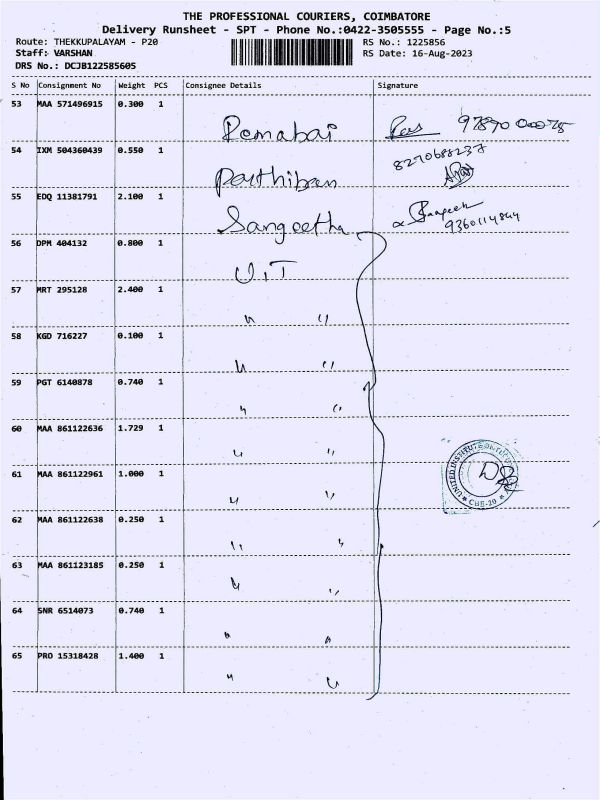 THE PROFESSIONAL COURIERS, COIMBATORE
Delivery Runsheet - SPT - Phone No.:0422-3505555 - Page No.:5
Route: THEKKUPALAYAM - P20 RS No.: 1225856
Staff: VARSHAN RS Date: 16-Aug-2023
DRS No.: DCJB122585605
S No Consignment No Weight PCS Consignee Details Signature
53 MAA 571496915 0.300 1 Remabai
54 IXM 504360439 0.550 1 Parthiban 8270688237
55 EDQ 11381791 2.100 1 Sangeetha Sangeeth 9360114844
56 DPM 404132 0.800 1 UIT
57 MRT 295128 2.400 1 " "
58 KGD 716227 0.100 1 " "
59 PGT 6140878 0.740 1 " "
60 MAA 861122636 1.729 1 " "
61 MAA 861122961 1.000 1 " "
62 MAA 861122638 0.250 1 " "
63 MAA 861123185 0.250 1 " "
64 SNR 6514073 0.740 1 " "
65 PRO 15318428 1.400 1 " "
UNITED INSTITUTE OF
CBE-20